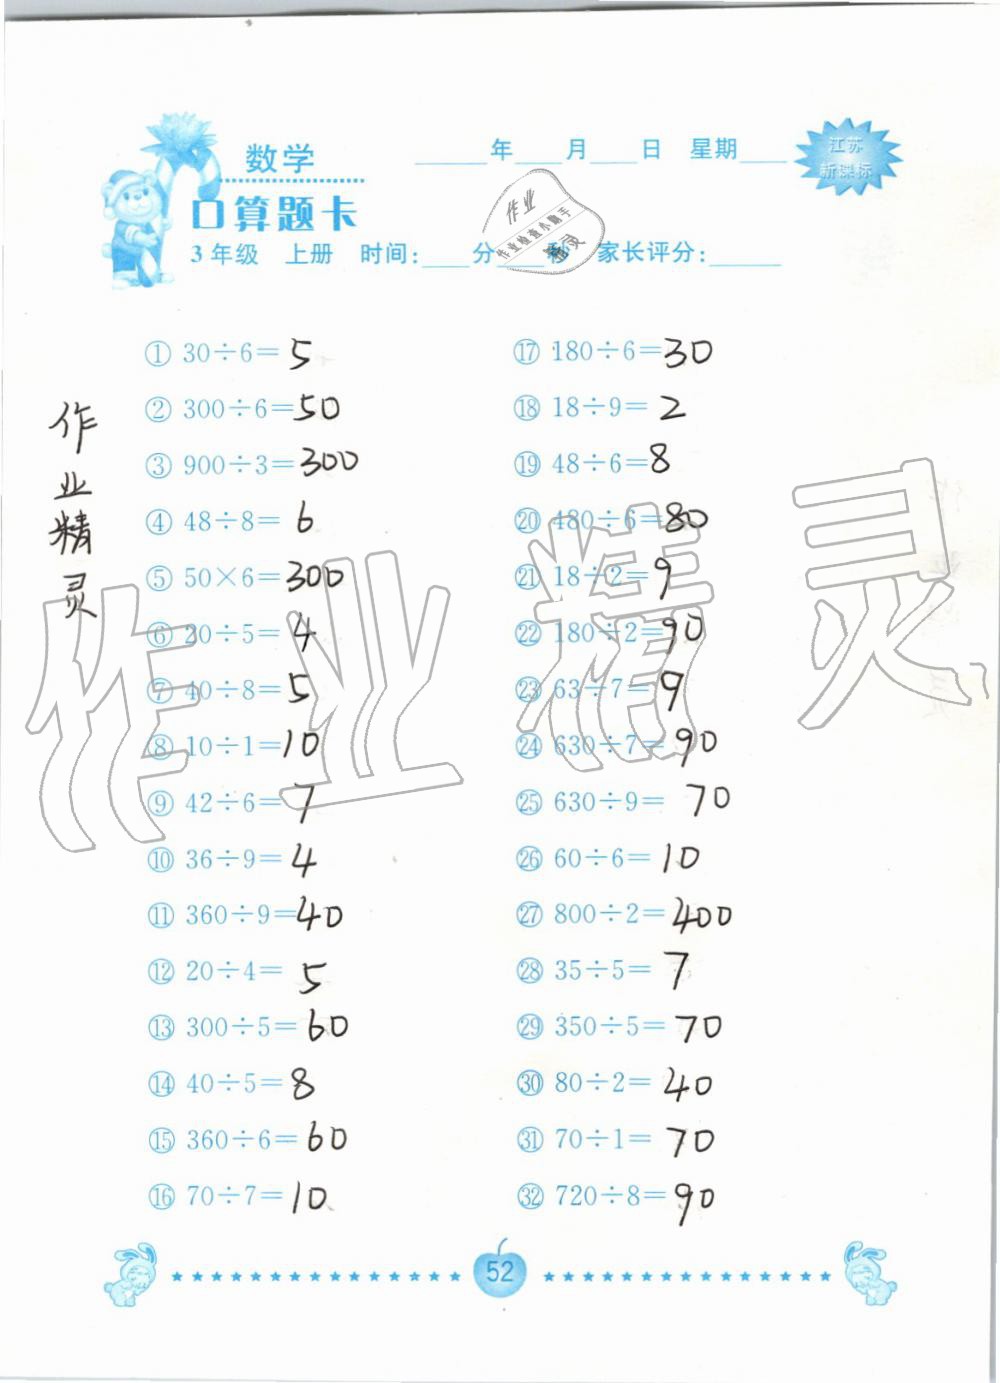 数学
____年____月____日 星期____
江苏
新课标
口算题卡
3年级 上册 时间:____分____秒 家长评分:____
作业
作业检查小助手
精灵
① 30÷6=5
② 300÷6=50
③ 900÷3=300
④ 48÷8=6
⑤ 50×6=300
⑥ 20÷5=4
⑦ 40÷8=5
⑧ 10÷1=10
⑨ 42÷6=7
⑩ 36÷9=4
⑪ 360÷9=40
⑫ 20÷4=5
⑬ 300÷5=60
⑭ 40÷5=8
⑮ 360÷6=60
⑯ 70÷7=10
⑰ 180÷6=30
⑱ 18÷9=2
⑲ 48÷6=8
⑳ 480÷6=80
㉑ 18÷2=9
㉒ 180÷2=90
㉓ 63÷7=9
㉔ 630÷7=90
㉕ 630÷9=70
㉖ 60÷6=10
㉗ 800÷2=400
㉘ 35÷5=7
㉙ 350÷5=70
㉚ 80÷2=40
㉛ 70÷1=70
㉜ 720÷8=90
作业精灵
作业精灵
52